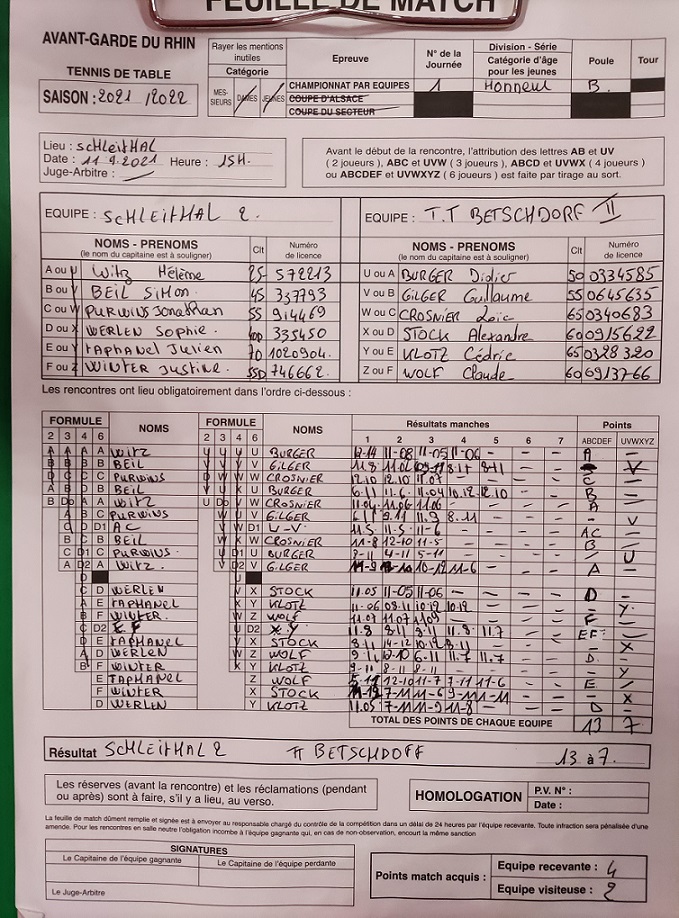 FEUILLE DE MATCH
AVANT-GARDE DU RHIN
TENNIS DE TABLE
SAISON : 2021 / 2022
Rayer les mentions inutiles
Catégorie
MES-SIEURS DAMES JEUNES
Epreuve
CHAMPIONNAT PAR EQUIPES
COUPE D'ALSACE
COUPE DU SECTEUR
N° de la Journée
1
Division - Série
Catégorie d'âge pour les jeunes
Honneur
Poule
B.
Tour
Lieu : SCHLEITHAL
Date : 11.9.2021 Heure : 15H.
Juge-Arbitre :
Avant le début de la rencontre, l'attribution des lettres AB et UV
( 2 joueurs ), ABC et UVW ( 3 joueurs ), ABCD et UVWX ( 4 joueurs )
ou ABCDEF et UVWXYZ ( 6 joueurs ) est faite par tirage au sort.
EQUIPE : SCHLEITHAL 2. EQUIPE : T.T BETSCHDORF II
NOMS - PRENOMS Clt Numéro de licence NOMS - PRENOMS Clt Numéro de licence
(le nom du capitaine est à souligner) (le nom du capitaine est à souligner)
A ou U Witz Hélène 25 572213 U ou A BURGER Didier 50 0334585
B ou V BEIL SiMon 45 337793 V ou B GILGER Guillaume 55 0645635
C ou W PURWINS Jonathan 55 914469 W ou C CROSNIER Loïc 65 0340683
D ou X WERLEN Sophie 335450 X ou D STOCK Alexandre 60 0915622
E ou Y TAPHANEL Julien 70 1020904. Y ou E KLOTZ Cédric 65 0328320
F ou Z WINTER Justine. 55D 746662. Z ou F WOLF Claude 60 0913766
Les rencontres ont lieu obligatoirement dans l'ordre ci-dessous :
FORMULE NOMS FORMULE NOMS Résultats manches Points
2 3 4 6 2 3 4 6 1 2 3 4 5 6 7 ABCDEF UVWXYZ
A WITZ U BURGER 12.14 11-08 11-05 11-06 - - - A -
B BEIL V GILGER 11.8 11.06 09-11 8-11 8-11 - - V
C PURWINS W CROSNIER 12.10 12.10 11.07 - - - - C -
B BEIL U BURGER 6-11 11.6 11.04 10.12 12.10 - - B -
A WITZ W CROSNIER 11.04 11.06 11.06 - - - - A -
C PURWINS V GILGER 9.11 11.9 8.11 - - - - V
D1 AC W D1 U-V 11.5 11.5 11-6 - - - - AC -
B BEIL W CROSNIER 11-8 12-10 11-5 - - - - B -
C PURWINS. U BURGER 8-11 4-11 5-11 - - - - U
A WITZ. V GILGER 11-9 10-12 11-6 - - - A -
D WERLEN X STOCK 11.05 11-05 11-06 - - - - D -
E TAPHANEL Y KLOTZ 11-06 08.11 10.12 10.12 - - - - Y.
F WINTER. Z WOLF 11.07 11.07 11.09 - - - - F -
D2 E.F U D2 X Y 11.8 8.11 9.11 11.8 11.7 - - EF -
E TAPHANEL X STOCK 8.11 14-12 10.12 8-11 - - - - X
D WERLEN Z WOLF 9-11 12-10 6-11 11.7 11.7 - - D. -
F WINTER Y KLOTZ 9-11 8-11 8-11 - - - - - Y
E TAPHANEL Z WOLF 5-11 12-10 11-7 7-11 11-6 - - E
F WINTER X STOCK 7-11 11-6 9-11 - - - X
D WERLEN Y KLOTZ 11.05 7-11 11-9 11-8 - - - D -
TOTAL DES POINTS DE CHAQUE EQUIPE 13 7
Résultat SCHLEITHAL 2 TT BETSCHDOFF 13 à 7.
Les réserves (avant la rencontre) et les réclamations (pendant
ou après) sont à faire, s'il y a lieu, au verso.
HOMOLOGATION
P.V. N° :
Date :
La feuille de match dûment remplie et signée est à envoyer au responsable chargé du contrôle de la compétition dans un délai de 24 heures par l'équipe recevante. Toute infraction sera pénalisée d'une
amende. Pour les rencontres en salle neutre l'obligation incombe à l'équipe gagnante qui, en cas de non-observation, encourt la même sanction
SIGNATURES
Le Capitaine de l'équipe gagnante Le Capitaine de l'équipe perdante
Le Juge-Arbitre
Points match acquis :
Equipe recevante : 4
Equipe visiteuse : 2